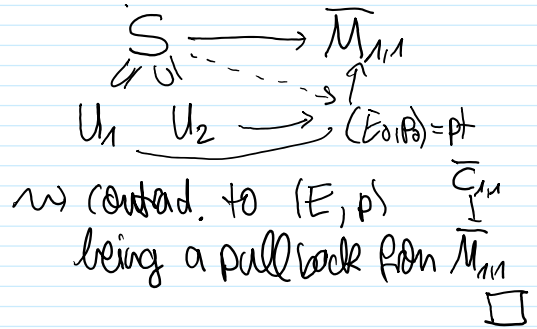 S → M̄₁,₁
U₁ U₂ → (E₀,p₀) = pt
⇝ contrad. to (E, p) C̄₁,₁
being a pullback from M̄₁,₁
□